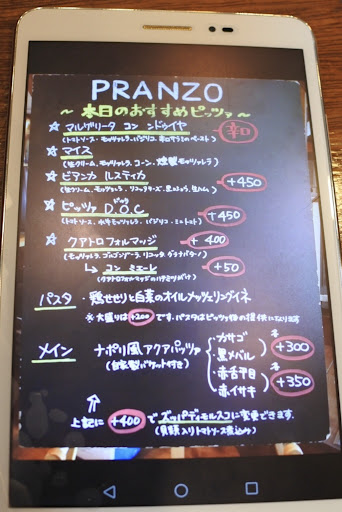 PRANZO
～本日のおすすめピッツァ～
☆ マルゲリータ コン ンドゥイヤ 辛口
(トマトソース・モッツァレラ・バジリコ・辛口サラミのペースト)
☆ マイス
(生クリーム、モッツァレラ、コーン、燻製モッツァレラ)
☆ ビアンカ ルスティカ +450
(生クリーム、モッツァレラ、リコッタチーズ、黒コショウ、生ハム)
☆ ピッツァ D.O.C +450
(トマトソース、水牛モッツァレラ、バジリコ、ミニトマト)
☆ クアトロフォルマッジ +400
(モッツァレラ、ゴルゴンゾーラ、リコッタ、グラナパダーノ)
↳ コン ミエーレ +50
(クアトロフォルマッジのハチミツがけ)
パスタ・鶏せせりと白菜のオイルメッシュリングイネ
※大盛りは+200です。パスタはピッツァ後の提供になります
メイン ナポリ風アクアパッツァ
(自家製バケット付き)
カサゴ
黒メバル 各+300
赤舌平目
赤イサキ 各+350
↑
上記に+400でズッパディモルスコに変更できます。
(貝類入りトマトソース煮込み)